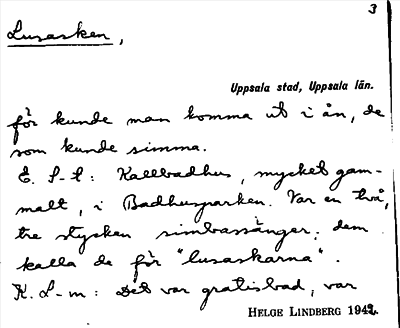 3
Lusasken,
Uppsala stad, Uppsala län.
för kunde man komma ut i ån, de
som kunde simma.
E. S-t: Kallbadhus, mycket gam-
malt, i Badhusparken. Var en två,
tre stycken simbassänger; dem
kalla de för "lusaskarna".
K. L-m: Det var gratisbad, var
HELGE LINDBERG 1942.